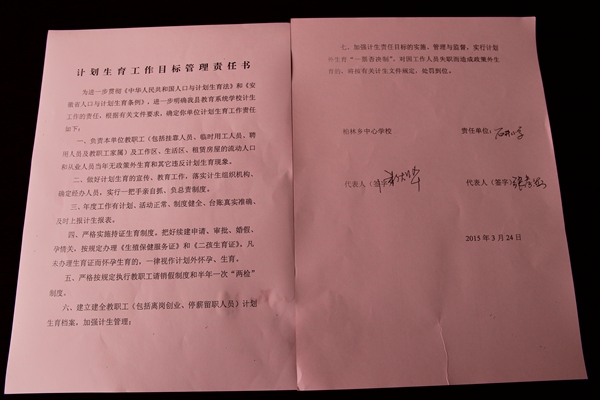 计划生育工作目标管理责任书
为进一步贯彻《中华人民共和国人口与计划生育法》和《安
徽省人口与计划生育条例》，进一步明确我县教育系统学校计生
工作的责任，根据有关文件要求，确定你单位计划生育工作责任
如下：
一、负责本单位教职工（包括挂靠人员、临时用工人员、聘
用人员及教职工家属）及工作区、生活区、租赁房屋的流动人口
和从业人员当年无政策外生育和其它违反计划生育现象。
二、做好计划生育的宣传、教育工作，落实计生组织机构、
确定经办人员，实行一把手亲自抓、负总责制度。
三、年度工作有计划、活动正常、制度健全、台账真实准确、
及时上报计生报表。
四、严格实施持证生育制度，把好续建申请、审批、婚假、
孕情关，按规定办理《生殖保健服务证》和《二孩生育证》，凡
未办理生育证而怀孕生育的，一律视作计划外怀孕、生育。
五、严格按规定执行教职工请销假制度和半年一次“两检”
制度。
六、建立建全教职工（包括离岗创业、停薪留职人员）计划
生育档案，加强计生管理；
七、加强计生责任目标的实施、管理与监督，实行计划
外生育“一票否决制”，对因工作人员失职而造成政策外生
育的，将按有关计生文件规定，处罚到位。
柏林乡中心学校 责任单位：
代表人（签字 代表人（签字）
2015 年 3 月 24 日